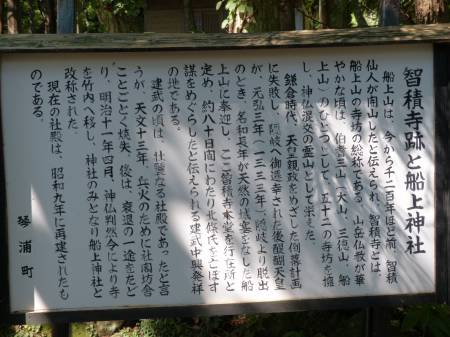 智積寺跡と船上神社
船上山は、今から千二百年ほど前、智積
仙人が開山したと伝えられ、智積寺とは
船上山の寺坊の総称である。山岳仏教が華
やかな頃は、伯耆三山(大山、三徳山、船
上山)のひとつとして、五十二の寺坊を擁
し、神仏混交の霊山として栄えた。
鎌倉時代、天皇親政をめざした倒幕計画
に失敗し、隠岐へ御遷幸された後醍醐天皇
が、元弘三年(一三三三年)、隠岐より脱出
のとき、名和長年が天然の城塞をなした船
上山に奉迎し、ここ智積寺本堂を行在所と
定め、約八十日間にわたり北條氏をほろぼす
謀をめぐらしたと伝えられる建武中興発祥
の地である。
建武の頃は、壮麗なる社殿であったと言
うが、天文十三年、兵火のために社閣坊舎
ことごとく焼失。後は、衰退の一途をたど
り、明治十一年四月、神仏判然令により寺
を竹内へ移し、神社のみとなり船上神社と
改称された。
現在の社殿は、昭和九年に再建されたも
のである。
琴浦町